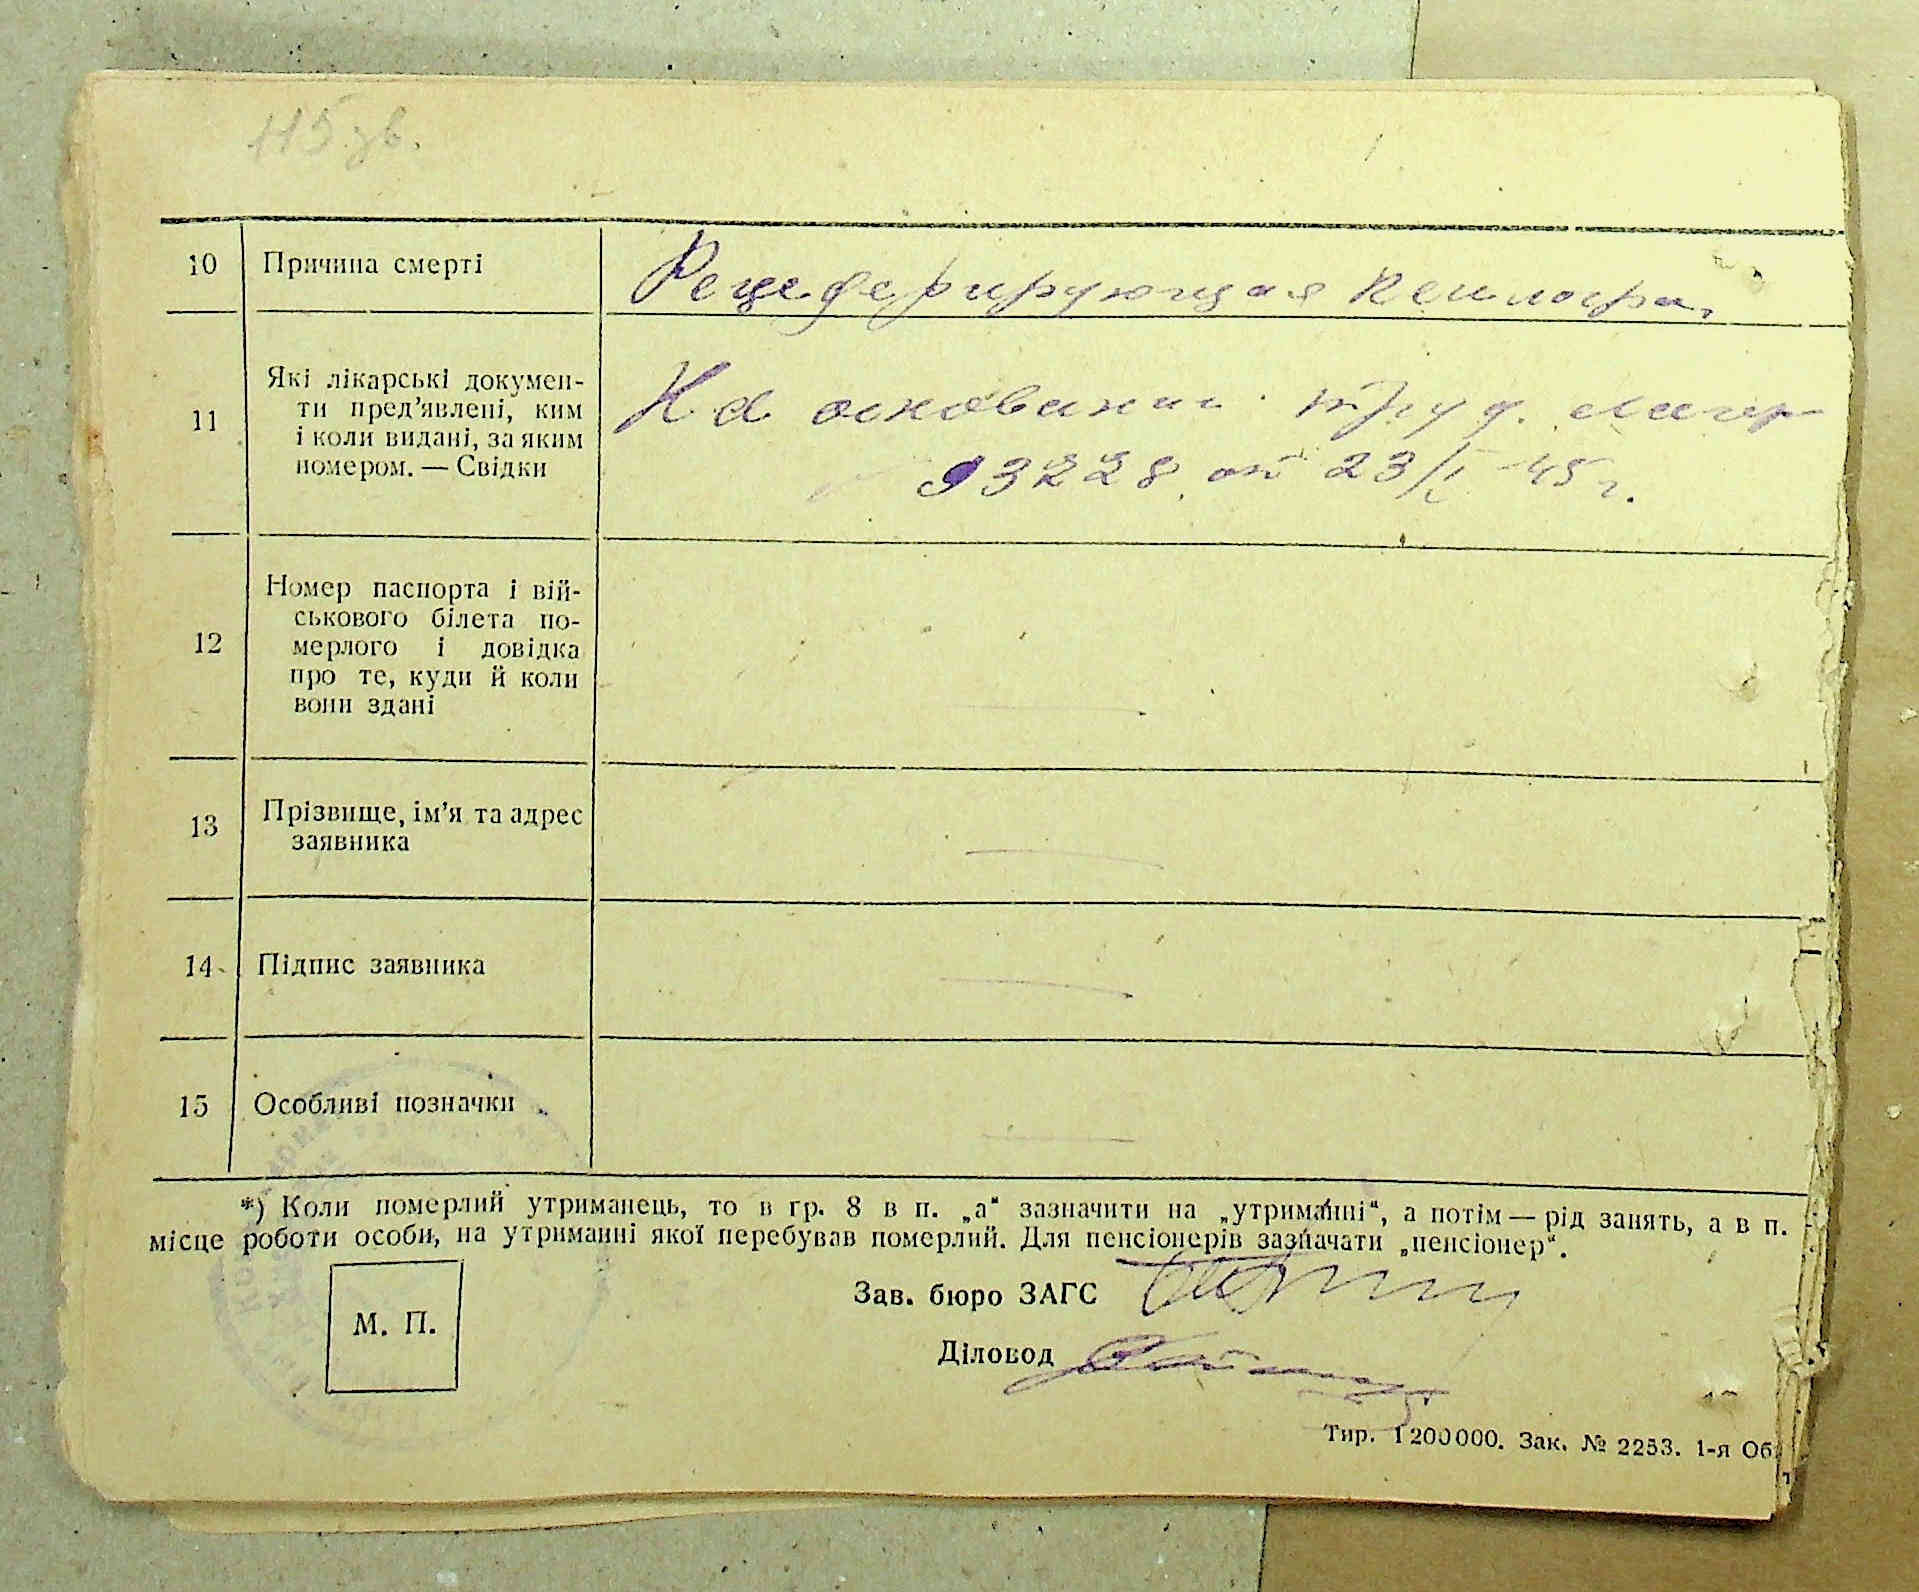 115 зв.
10 Причина смерті Рецеферирующая
11 Які лікарські докумен-
ти пред’явлені, ким
і коли видані, за яким
номером. — Свідки
На основании труд. лагер
93228 от 23/I 45 г.
12 Номер паспорта і вій-
ськового білета по-
мерлого і довідка
про те, куди й коли
вони здані
13 Прізвище, ім’я та адрес
заявника
14 Підпис заявника
15 Особливі позначки
*) Коли померлий утриманець, то в гр. 8 в п. „а“ зазначити на „утриманні“, а потім — рід занять, а в п.
місце роботи особи, на утриманні якої перебував померлий. Для пенсіонерів зазначати „пенсіонер“.
Зав. бюро ЗАГС
М. П.
Діловод
Тир. 1 200 000. Зак. № 2253. 1-я Об